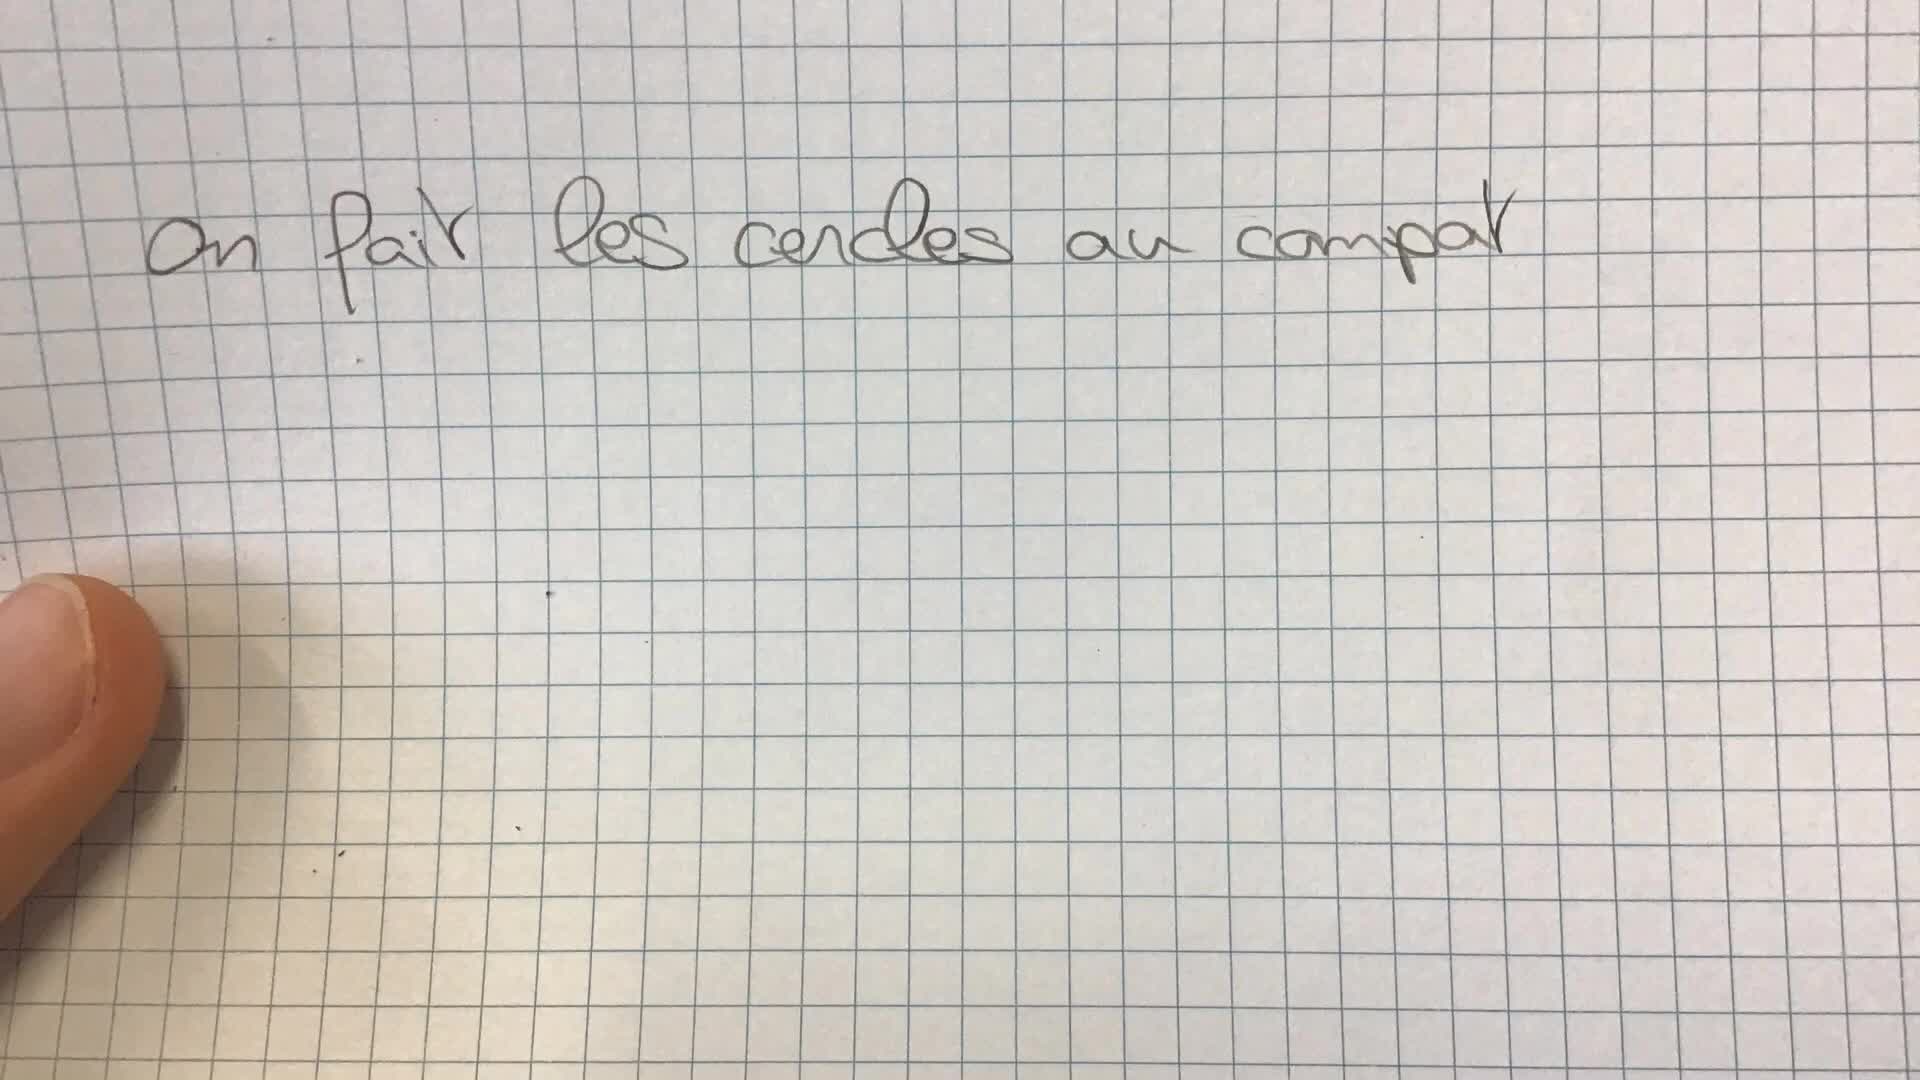 On fait les cercles au compat